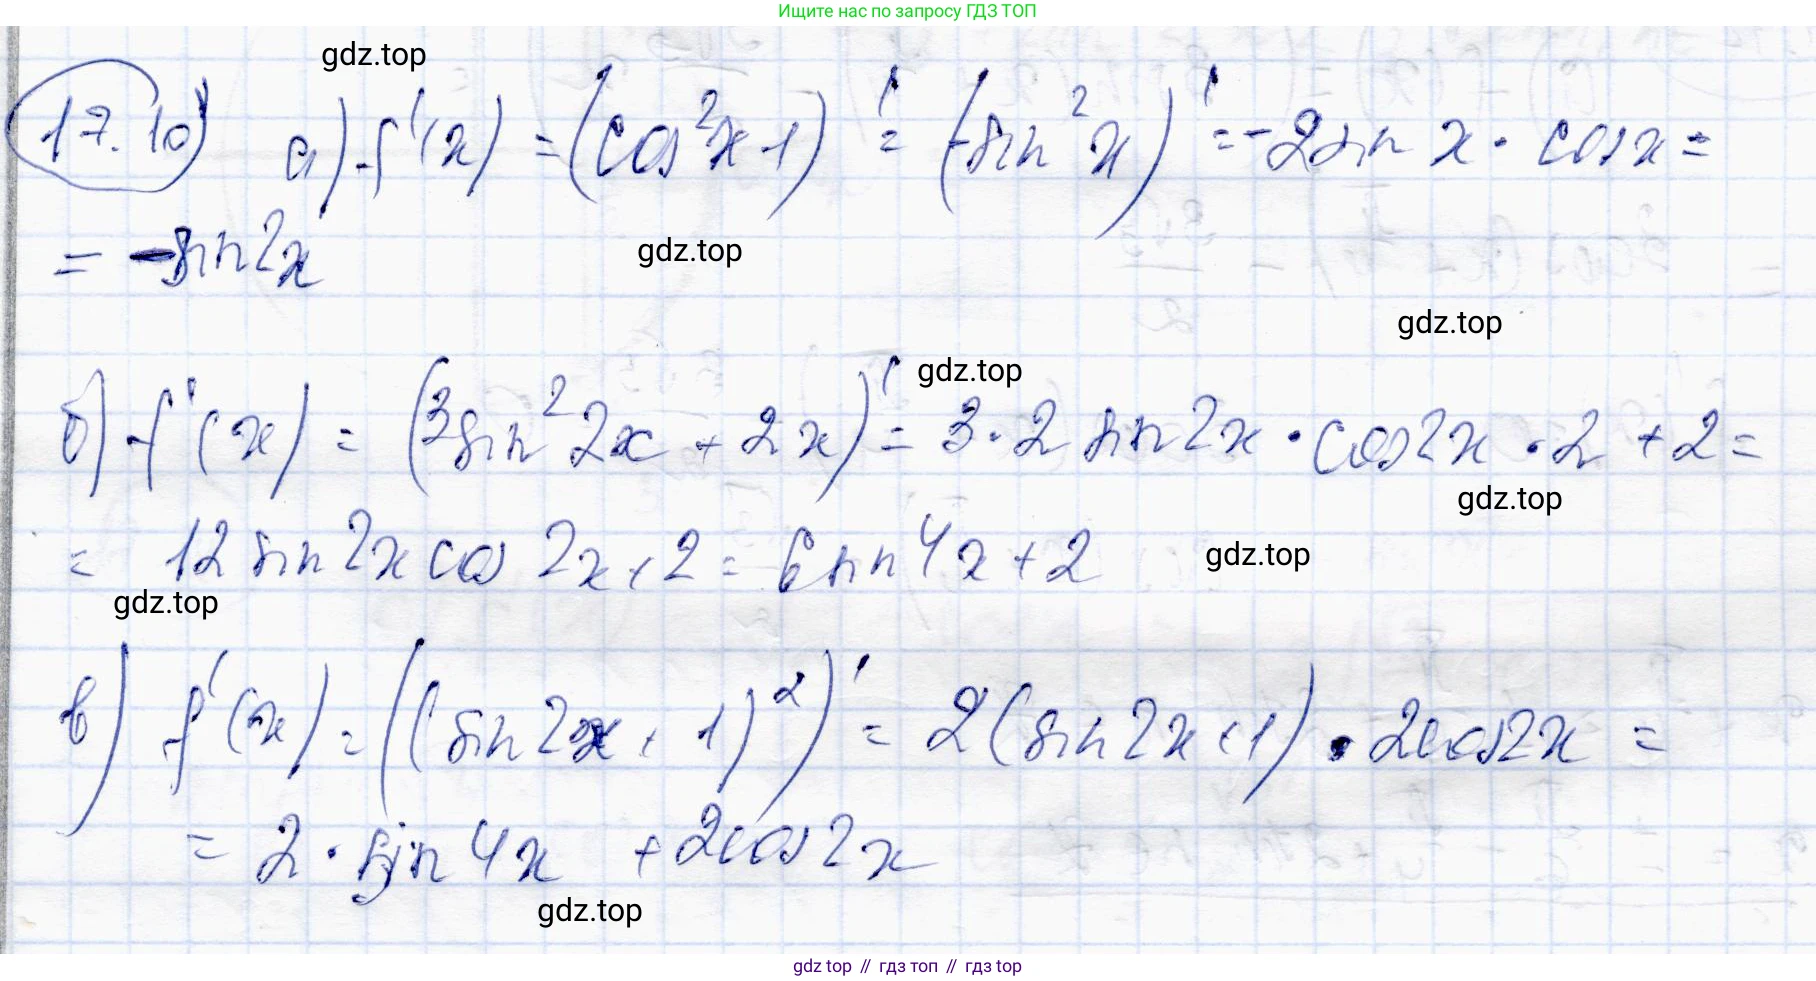 Ищите нас по запросу ГДЗ ТОП
gdz.top
17.10 а) f'(x) = (cos²x-1)' = (-sin²x)' = -2sin x · cos x =
= -sin2x
gdz.top
gdz.top
gdz.top
б) f'(x) = (3sin²2x + 2x)' = 3·2 sin2x · cos2x · 2 + 2 =
gdz.top
= 12 sin2x cos 2x + 2 = 6sin4x + 2
gdz.top
gdz.top
в) f'(x) = ((sin2x + 1)²)' = 2(sin2x + 1) · 2cos2x =
= 2 · sin4x + 2cos2x
gdz.top
gdz top // гдз топ // гдз top